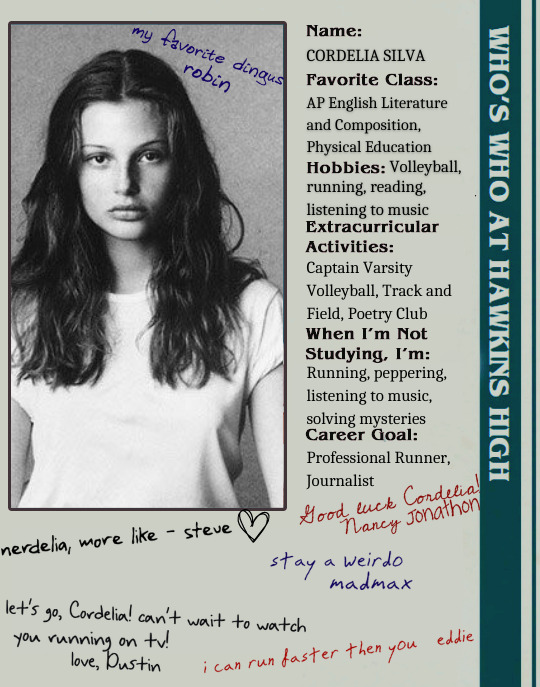 my favorite dingus
robin
Name:
CORDELIA SILVA
Favorite Class:
AP English Literature
and Composition,
Physical Education
Hobbies: Volleyball,
running, reading,
listening to music
Extracurricular
Activities:
Captain Varsity
Volleyball, Track and
Field, Poetry Club
When I'm Not
Studying, I'm:
Running, peppering,
listening to music,
solving mysteries
Career Goal:
Professional Runner,
Journalist
WHO'S WHO AT HAWKINS HIGH
Good luck Cordelia!
Nancy JONATHON
nerdelia, more like - steve
stay a weirdo
madmax
let's go, Cordelia! can't wait to watch
you running on tv!
love, Dustin
i can run faster then you eddie